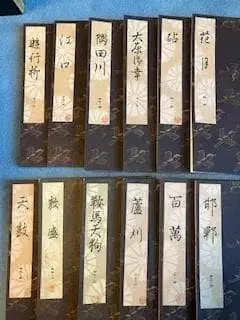 花月
砧
大原御幸
隅田川
江口
遊行柳
邯鄲
百萬
蘆刈
鞍馬天狗
敦盛
天鼓